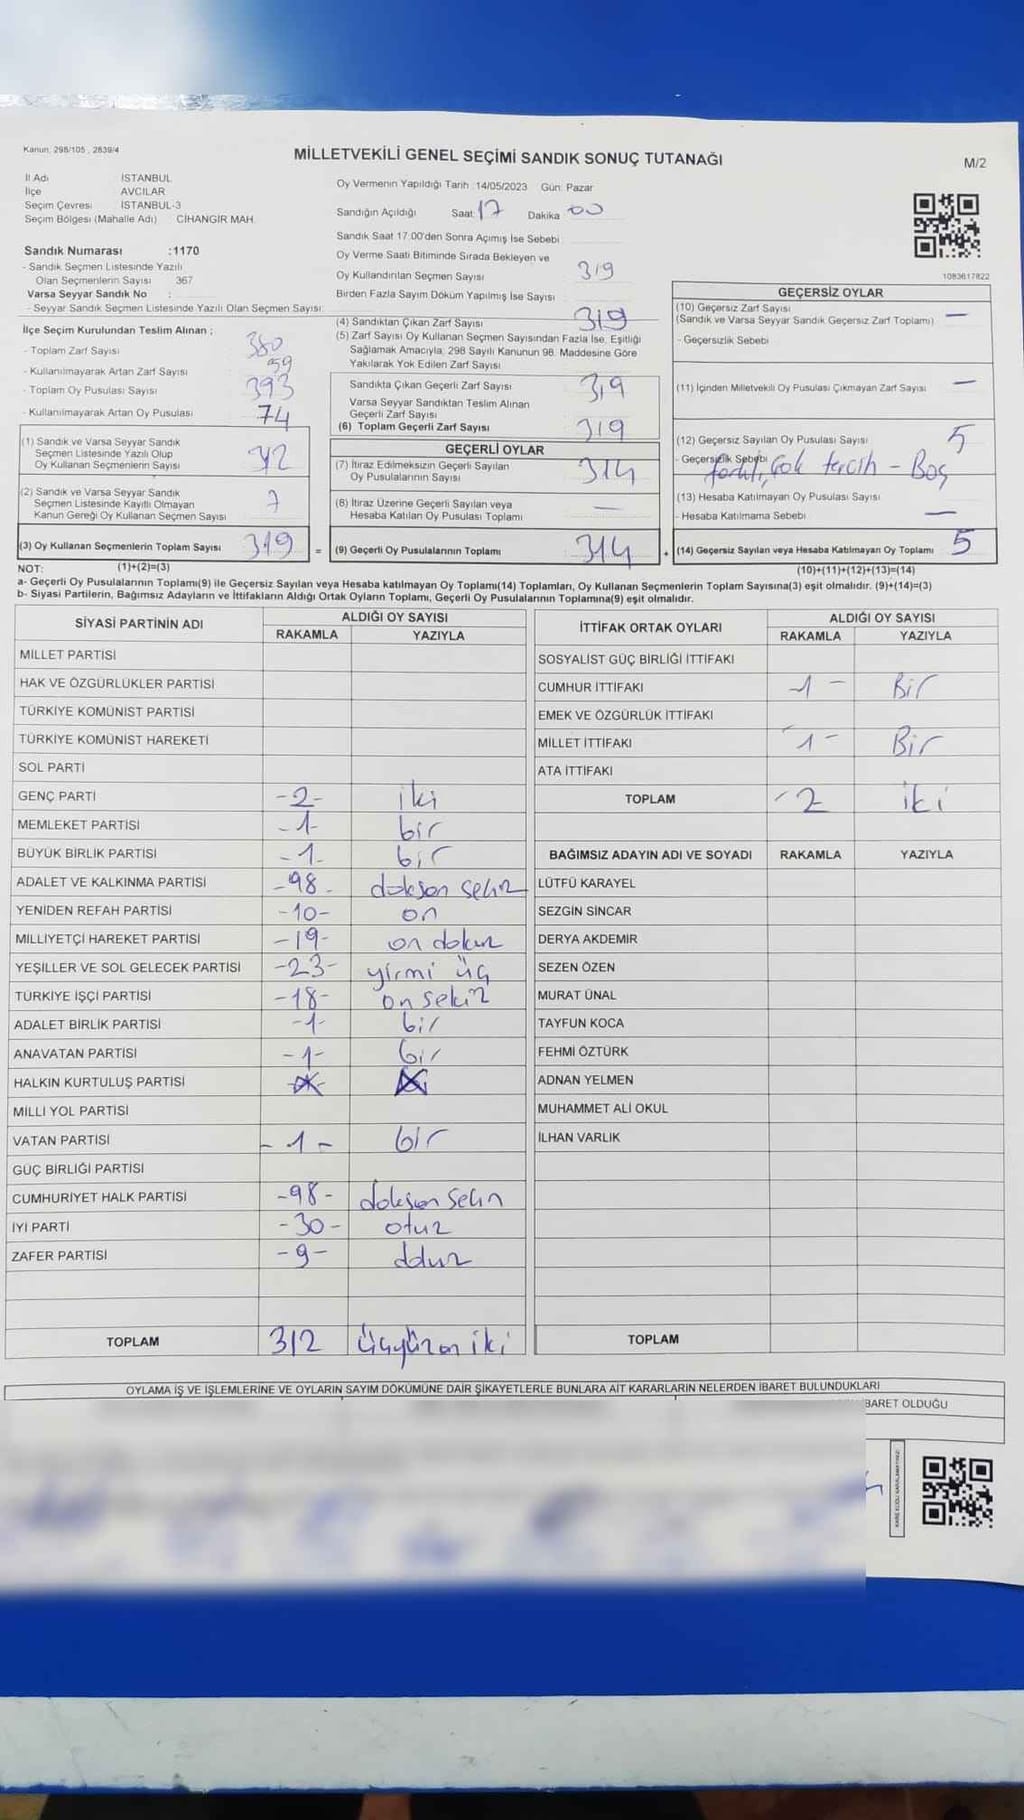 Kanun: 298/105 , 2839/4
MİLLETVEKİLİ GENEL SEÇİMİ SANDIK SONUÇ TUTANAĞI
M/2
İl Adı İSTANBUL
İlçe AVCILAR
Seçim Çevresi İSTANBUL-3
Seçim Bölgesi (Mahalle Adı) CİHANGİR MAH.
Sandık Numarası :1170
- Sandık Seçmen Listesinde Yazılı
Olan Seçmenlerin Sayısı 367
Varsa Seyyar Sandık No :
- Seyyar Sandık Seçmen Listesinde Yazılı Olan Seçmen Sayısı:
İlçe Seçim Kurulundan Teslim Alınan ;
- Toplam Zarf Sayısı 380
- Kullanılmayarak Artan Zarf Sayısı
- Toplam Oy Pusulası Sayısı 393
- Kullanılmayarak Artan Oy Pusulası 74
(1) Sandık ve Varsa Seyyar Sandık
Seçmen Listesinde Yazılı Olup
Oy Kullanan Seçmenlerin Sayısı 312
(2) Sandık ve Varsa Seyyar Sandık
Seçmen Listesinde Kayıtlı Olmayan
Kanun Gereği Oy Kullanan Seçmen Sayısı 7
(3) Oy Kullanan Seçmenlerin Toplam Sayısı 319 =
Oy Vermenin Yapıldığı Tarih :14/05/2023 Gün: Pazar
Sandığın Açıldığı Saat: 17 Dakika 00
Sandık Saat 17:00'den Sonra Açımış İse Sebebi :
Oy Verme Saati Bitiminde Sırada Bekleyen ve
Oy Kullandırılan Seçmen Sayısı 319
Birden Fazla Sayım Döküm Yapılmış İse Sayısı
(4) Sandıktan Çıkan Zarf Sayısı 319
(5) Zarf Sayısı Oy Kullanan Seçmen Sayısından Fazla İse, Eşitliği
Sağlamak Amacıyla, 298 Sayılı Kanunun 98. Maddesine Göre
Yakılarak Yok Edilen Zarf Sayısı
Sandıkta Çıkan Geçerli Zarf Sayısı 319
Varsa Seyyar Sandıktan Teslim Alınan
Geçerli Zarf Sayısı
(6) Toplam Geçerli Zarf Sayısı 319
GEÇERLİ OYLAR
(7) İtiraz Edilmeksizin Geçerli Sayılan
Oy Pusulalarının Sayısı 314
(8) İtiraz Üzerine Geçerli Sayılan veya
Hesaba Katılan Oy Pusulası Toplamı —
(9) Geçerli Oy Pusulalarının Toplamı 314 +
1083617822
GEÇERSİZ OYLAR
(10) Geçersiz Zarf Sayısı
(Sandık ve Varsa Seyyar Sandık Geçersiz Zarf Toplamı) —
- Geçersizlik Sebebi
(11) İçinden Milletvekili Oy Pusulası Çıkmayan Zarf Sayısı —
(12) Geçersiz Sayılan Oy Pusulası Sayısı 5
- Geçersizlik Sebebi Çok tercih - Boş
(13) Hesaba Katılmayan Oy Pusulası Sayısı
- Hesaba Katılmama Sebebi —
(14) Geçersiz Sayılan veya Hesaba Katılmayan Oy Toplamı 5
NOT: (1)+(2)=(3) (10)+(11)+(12)+(13)=(14)
a- Geçerli Oy Pusulalarının Toplamı(9) ile Geçersiz Sayılan veya Hesaba katılmayan Oy Toplamı(14) Toplamları, Oy Kullanan Seçmenlerin Toplam Sayısına(3) eşit olmalıdır. (9)+(14)=(3)
b- Siyasi Partilerin, Bağımsız Adayların ve İttifakların Aldığı Ortak Oyların Toplamı, Geçerli Oy Pusulalarının Toplamına(9) eşit olmalıdır.
SİYASİ PARTİNİN ADI ALDIĞI OY SAYISI
RAKAMLA YAZIYLA
MİLLET PARTİSİ
HAK VE ÖZGÜRLÜKLER PARTİSİ
TÜRKİYE KOMÜNİST PARTİSİ
TÜRKİYE KOMÜNİST HAREKETİ
SOL PARTİ
GENÇ PARTİ -2- iki
MEMLEKET PARTİSİ -1- bir
BÜYÜK BİRLİK PARTİSİ -1- bir
ADALET VE KALKINMA PARTİSİ -98- doksan sekiz
YENİDEN REFAH PARTİSİ -10- on
MİLLİYETÇİ HAREKET PARTİSİ -19- on dokuz
YEŞİLLER VE SOL GELECEK PARTİSİ -23- yirmi üç
TÜRKİYE İŞÇİ PARTİSİ -18- on sekiz
ADALET BİRLİK PARTİSİ -1- bir
ANAVATAN PARTİSİ -1- bir
HALKIN KURTULUŞ PARTİSİ
MİLLİ YOL PARTİSİ
VATAN PARTİSİ -1- bir
GÜÇ BİRLİĞİ PARTİSİ
CUMHURİYET HALK PARTİSİ -98- doksan sekiz
İYİ PARTİ -30- otuz
ZAFER PARTİSİ -9- dokuz
TOPLAM 312 üçyüzon iki
İTTİFAK ORTAK OYLARI ALDIĞI OY SAYISI
RAKAMLA YAZIYLA
SOSYALİST GÜÇ BİRLİĞİ İTTİFAKI
CUMHUR İTTİFAKI -1- Bir
EMEK VE ÖZGÜRLÜK İTTİFAKI
MİLLET İTTİFAKI -1- Bir
ATA İTTİFAKI
TOPLAM -2 iki
BAĞIMSIZ ADAYIN ADI VE SOYADI RAKAMLA YAZIYLA
LÜTFÜ KARAYEL
SEZGİN SİNCAR
DERYA AKDEMİR
SEZEN ÖZEN
MURAT ÜNAL
TAYFUN KOCA
FEHMİ ÖZTÜRK
ADNAN YELMEN
MUHAMMET ALİ OKUL
İLHAN VARLIK
TOPLAM
OYLAMA İŞ VE İŞLEMLERİNE VE OYLARIN SAYIM DÖKÜMÜNE DAİR ŞİKAYETLERLE BUNLARA AİT KARARLARIN NELERDEN İBARET BULUNDUKLARI
BARET OLDUĞU